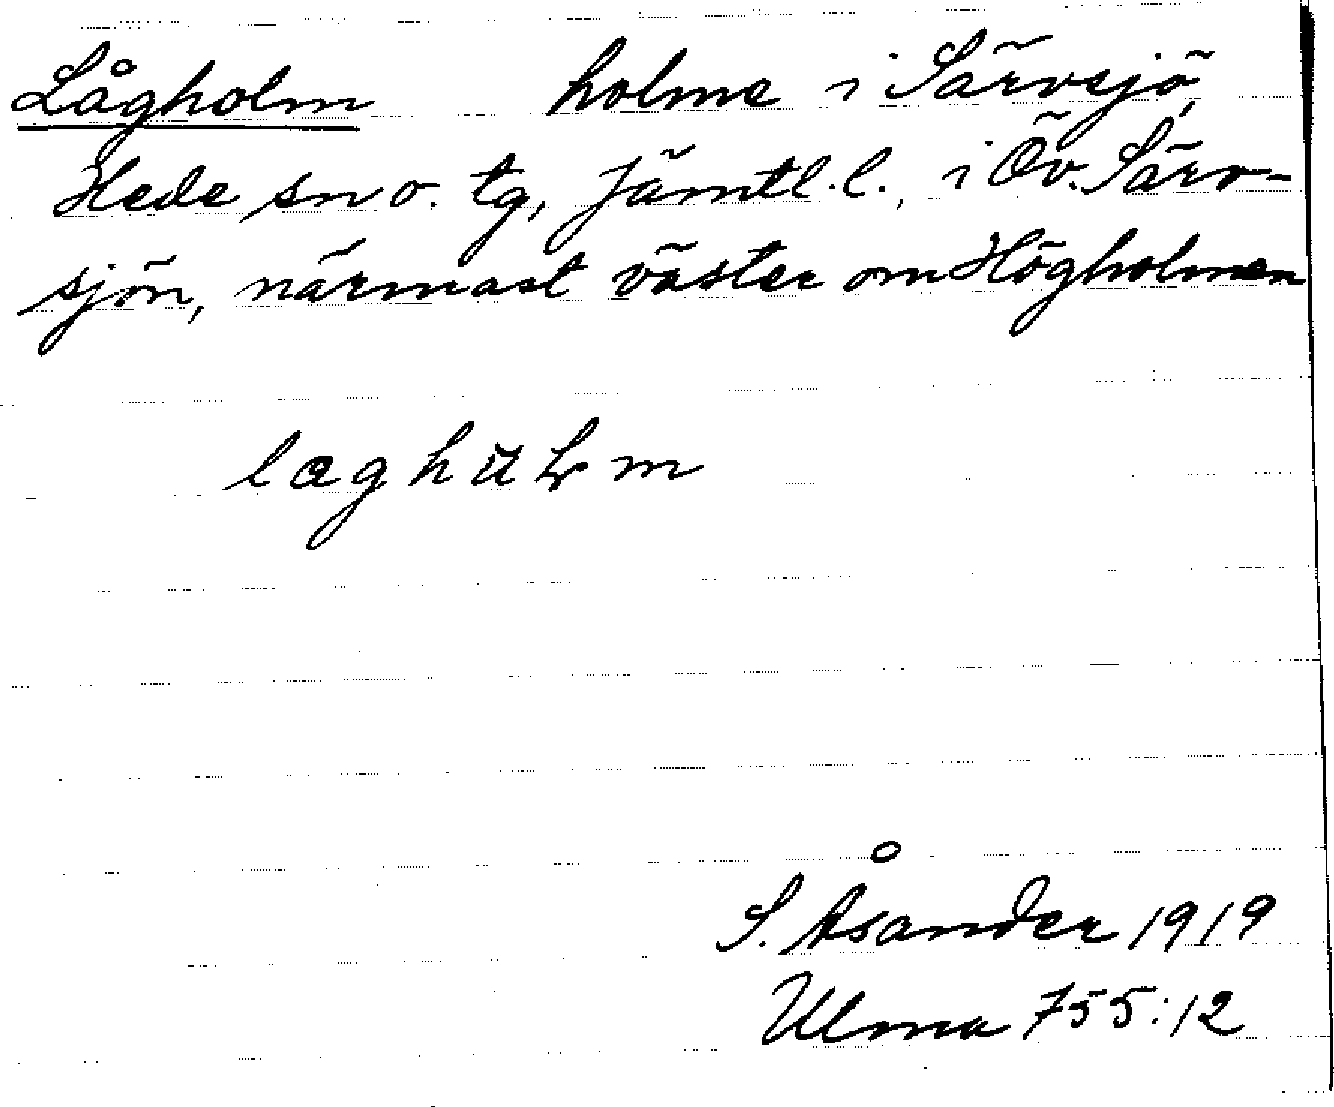 Lågholm holme i Särvsjö,
Hede sn o. tg, Jämtl. l., i Öv. Särv-
sjön, närmast väster om Högholmen
S. Åsander 1919
Ulma 755:12